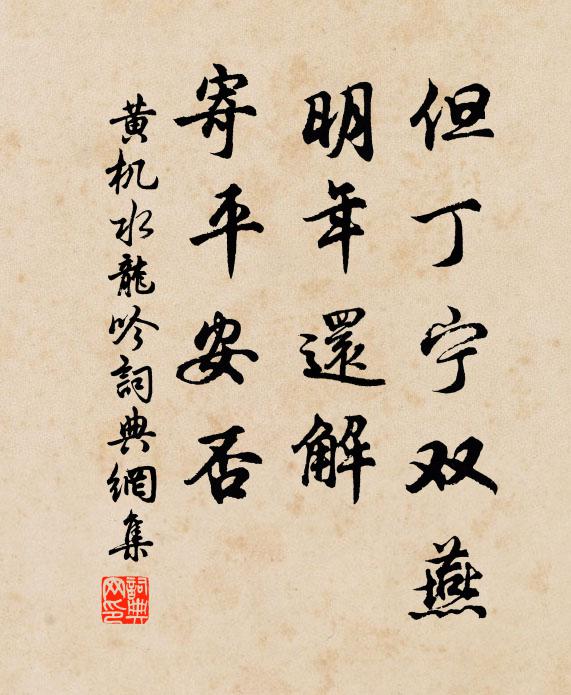 但丁宁双燕
明年還解
寄平安否
黄机水龍吟詞典網集
詞典网印